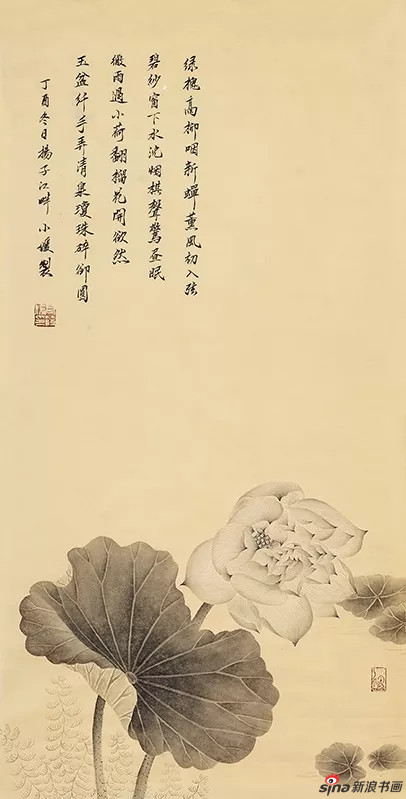 绿槐高柳咽新蟬薰風初入弦
碧紗窗下水沈烟棋聲驚昼眠
微雨過小荷翻榴花開欲然
玉盆纤手弄清泉瓊珠碎卻圓
丁酉冬日揚子江畔小媛製
sina新浪书画